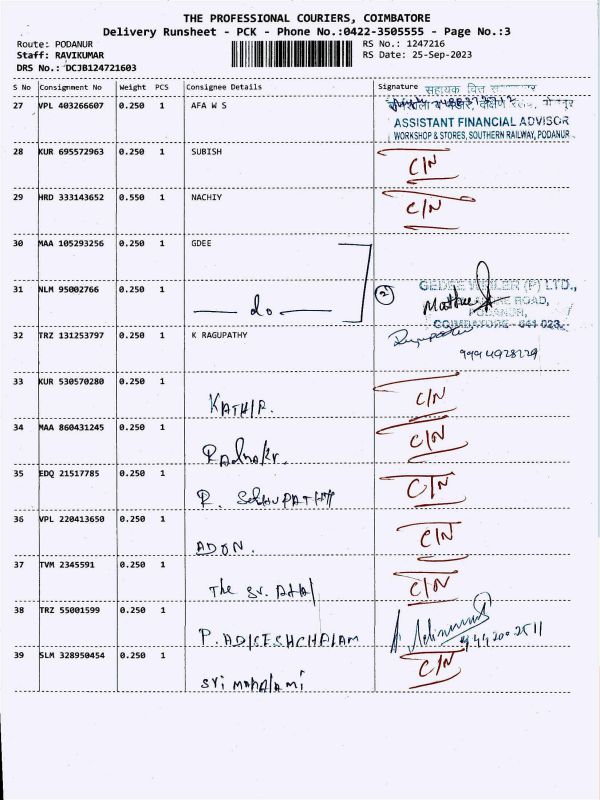 THE PROFESSIONAL COURIERS, COIMBATORE
Delivery Runsheet - PCK - Phone No.:0422-3505555 - Page No.:3
Route: PODANUR RS No.: 1247216
Staff: RAVIKUMAR RS Date: 25-Sep-2023
DRS No.: DCJB124721603
S No Consignment No Weight PCS Consignee Details Signature
सहायक वित्त
27 VPL 403266607 0.250 1 AFA W S
ASSISTANT FINANCIAL ADVISOR
WORKSHOP & STORES, SOUTHERN RAILWAY, PODANUR
28 KUR 695572963 0.250 1 SUBISH C/N
29 HRD 333143652 0.550 1 NACHIY C/N
30 MAA 105293256 0.250 1 GDEE
31 NLM 95002766 0.250 1 do 2
GEDEE WEILER (P) LTD.,
ROAD,
PODANUR,
COIMBATORE - 641 023.
32 TRZ 131253797 0.250 1 K RAGUPATHY
33 KUR 530570280 0.250 1 KATHIR. C/N
34 MAA 860431245 0.250 1 C/N
35 EDQ 21517785 0.250 1 R. C/N
36 VPL 220413650 0.250 1 ADON. C/N
37 TVM 2345591 0.250 1 The C/N
38 TRZ 55001599 0.250 1 P. ADICESHCHALAM
39 SLM 328950454 0.250 1 Sri C/N